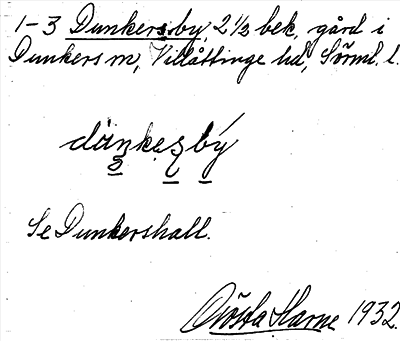 1-3 Dunkersby, 2 1/2 bek. gård i
Dunkers m, Villåttinge hd, Sörml. l.
Se Dunkershall.
Gösta Harne 1932.